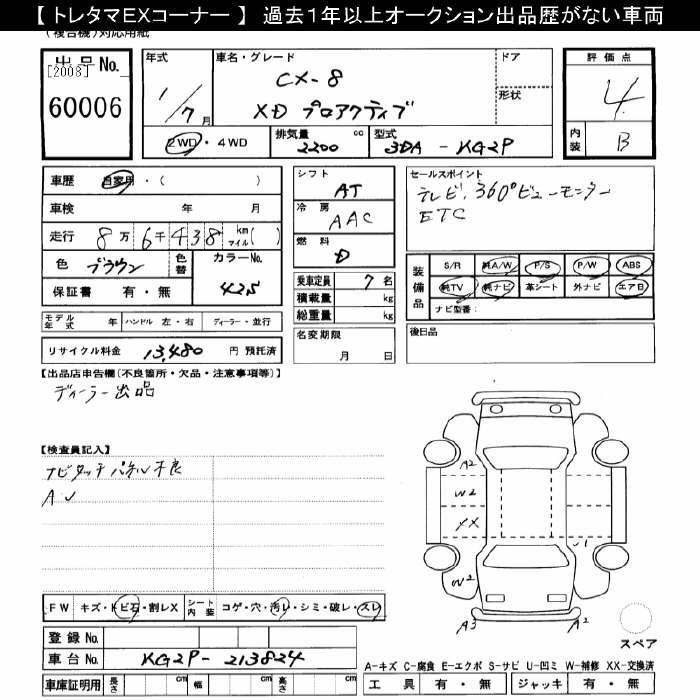 【 トレタマEXコーナー 】 過去1年以上オークション出品歴がない車両
(複合機)対応用紙
出品No. [2008] 60006
年式 1/7月
車名・グレード CX-8
XD プロアクティブ
ドア
形状
2WD・4WD
排気量 2200 cc
型式 3DA - KG2P
評価点 4
内装 B
車歴 自家用・( )
車検 年 月
走行 8万6千438 km マイル( )
色 ブラウン 色替 カラーNo. 42S
保証書 有・無
シフト AT
冷房 AAC
燃料 D
乗車定員 7名
積載量 kg
総重量 kg
セールスポイント
テレビ、360°ビューモニター
ETC
装備品 S/R 純A/W P/S P/W ABS
純TV 純ナビ 革シート 外ナビ エアB
ナビ型番:
モデル年式 年 ハンドル 左・右 ディーラー・並行
リサイクル料金 13,480 円 預託済
名変期限 月 日
後日品
【出品店申告欄(不良箇所・欠品・注意事項等)】
ディーラー出品
【検査員記入】
ナビタッチパネル不良
A レ
A2
W2
XX
W2
A3
A2
FW キズ・トビ石・割レX
シート内装 コゲ・穴・汚レ・シミ・破レ・スレ
登録No.
車台No. KG2P-213824
車庫証明用 長さ cm 幅 cm 高さ cm
スペア
A-キズ C-腐食 E-エクボ S-サビ U-凹ミ W-補修 XX-交換済
工具 有・無 ジャッキ 有・無